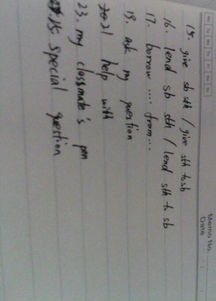 Memo No.
Date
15. give sb sth / give sth to sb
16. lend sb sth / lend sth to sb
17. borrow ... from ...
19. ask my question
21 help with
23. my classmate's pen
25 special question